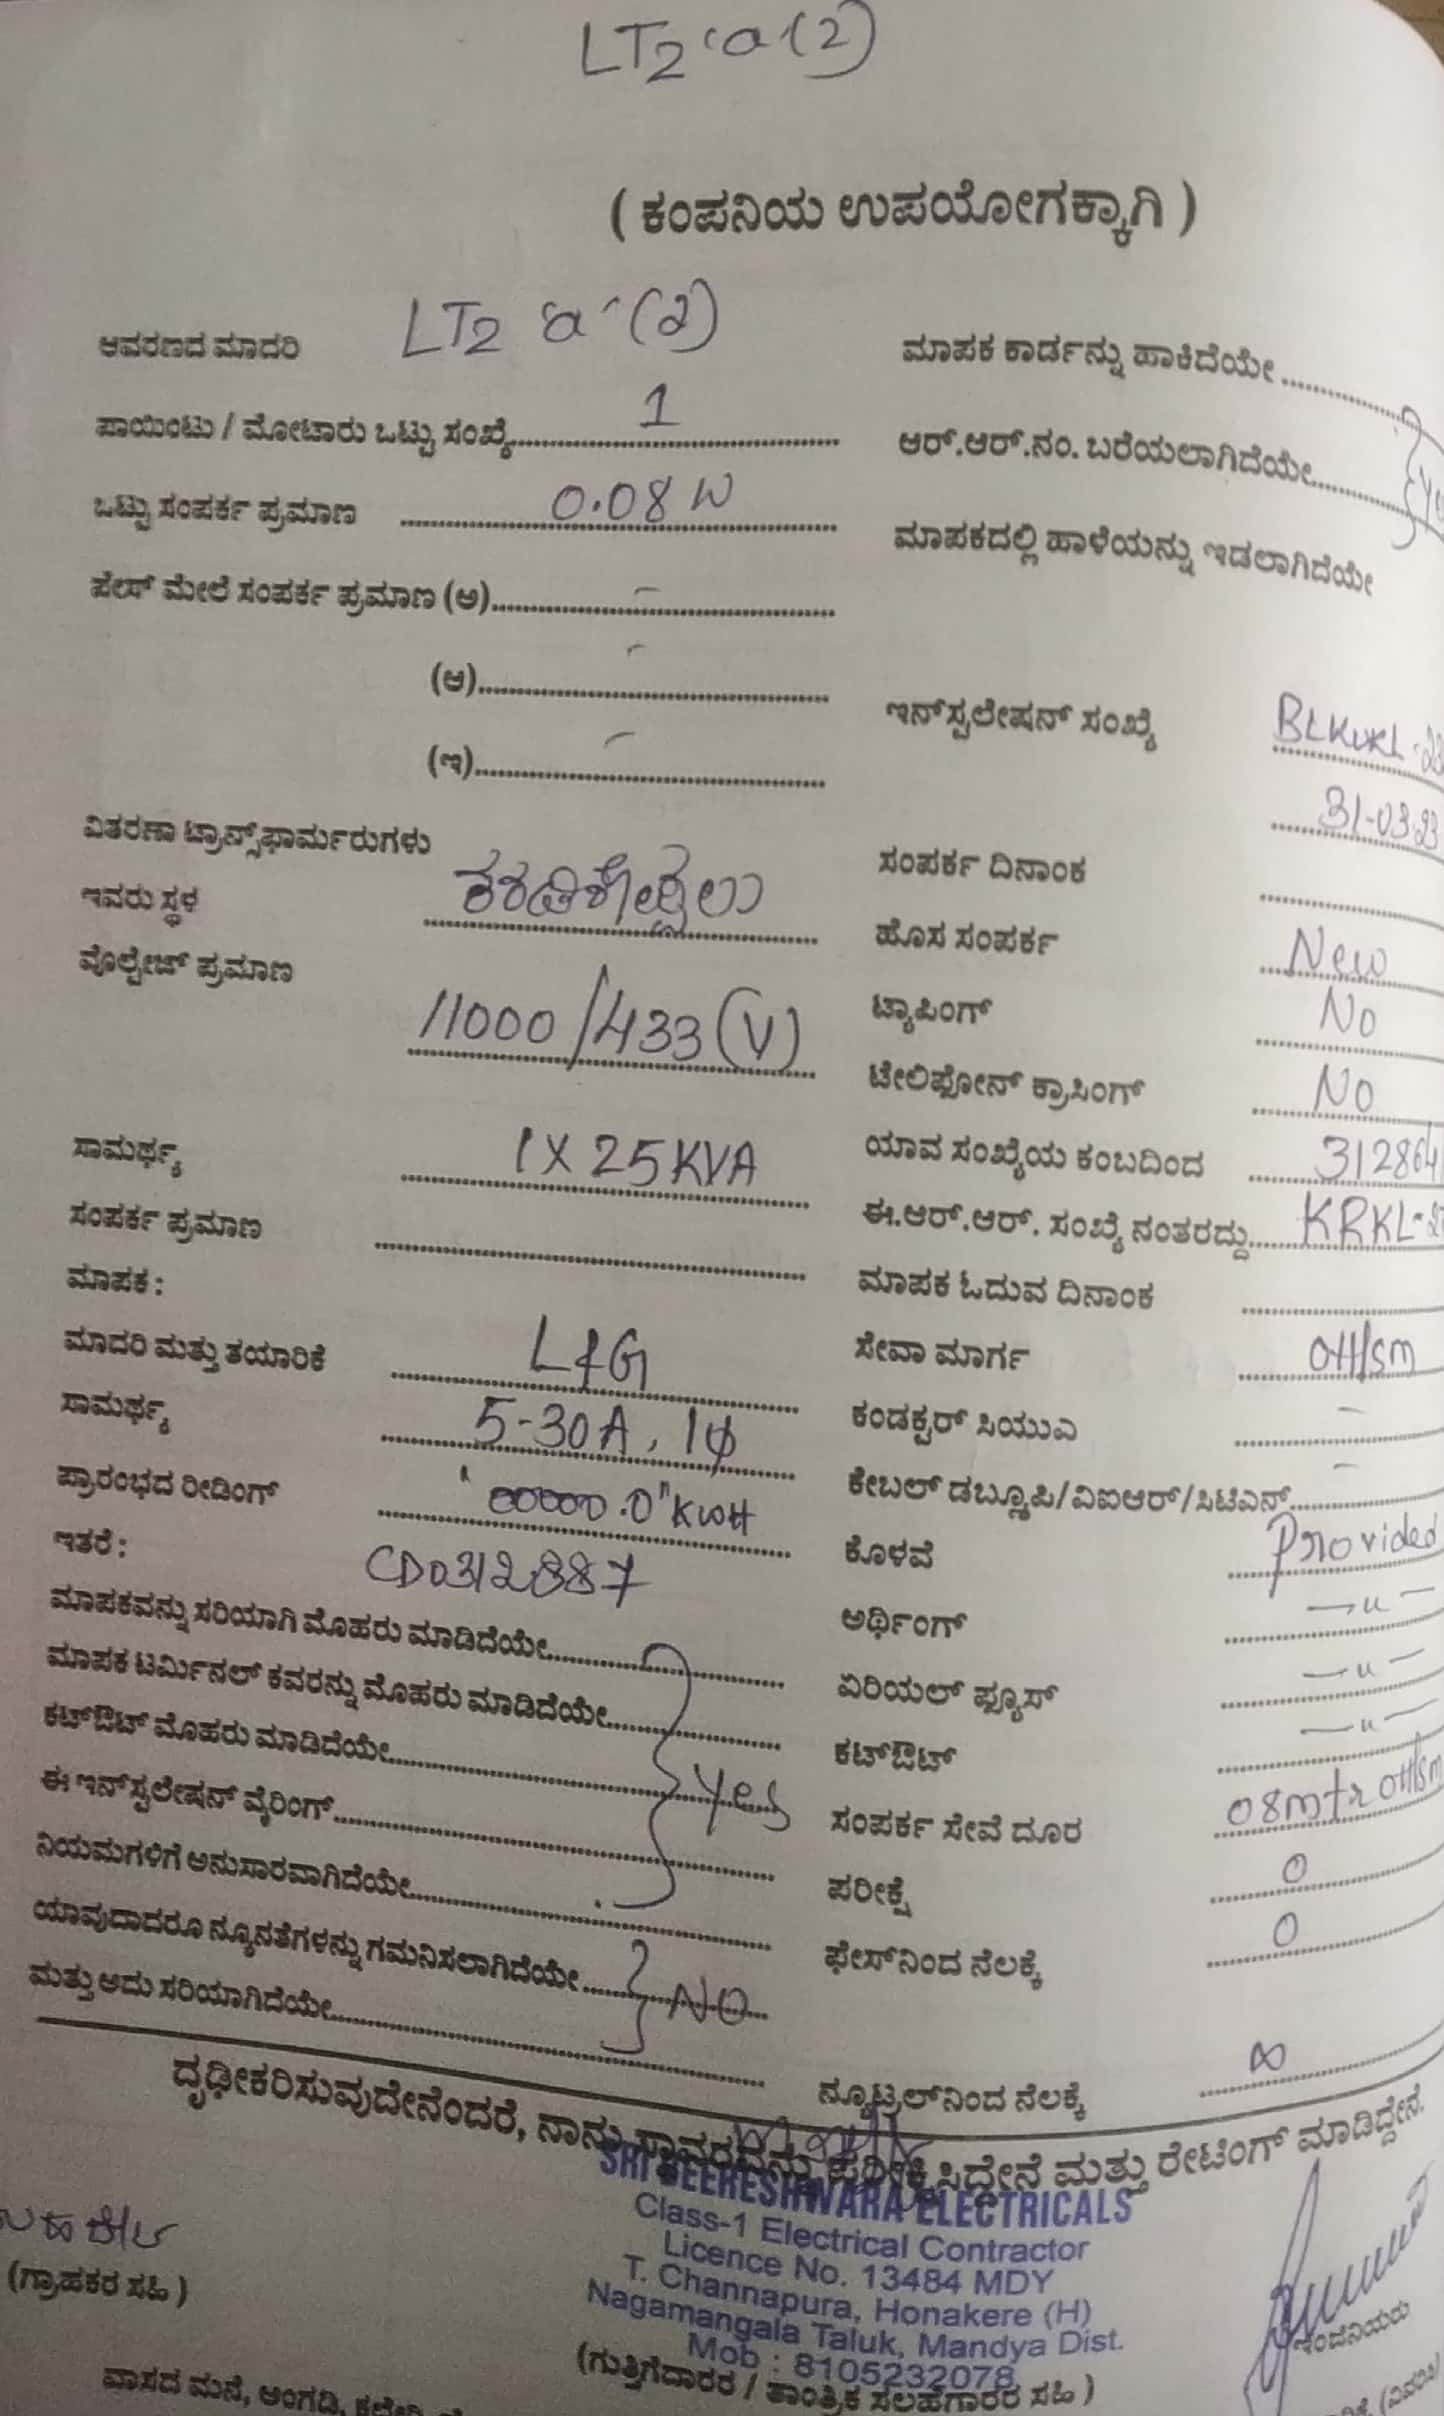 LT2 'a' (2)
( ಕಂಪನಿಯ ಉಪಯೋಗಕ್ಕಾಗಿ )
ಆವರಣದ ಮಾದರಿ LT2 'a' (2)
ಪಾಯಿಂಟು / ಮೋಟಾರು ಒಟ್ಟು ಸಂಖ್ಯೆ 1
ಒಟ್ಟು ಸಂಪರ್ಕ ಪ್ರಮಾಣ 0.08 W
ಪೆಲ್ಸ್ ಮೇಲೆ ಸಂಪರ್ಕ ಪ್ರಮಾಣ (ಅ) -
(ಆ) -
(ಇ) -
ವಿತರಣಾ ಟ್ರಾನ್ಸ್‌ಫಾರ್ಮರುಗಳು
ಇವರು ಸ್ಥಳ
ವೊಲ್ಟೇಜ್ ಪ್ರಮಾಣ 11000/433(V)
ಸಾಮರ್ಥ್ಯ 1X25KVA
ಸಂಪರ್ಕ ಪ್ರಮಾಣ
ಮಾಪಕ :
ಮಾದರಿ ಮತ್ತು ತಯಾರಿಕೆ L&G
ಸಾಮರ್ಥ್ಯ 5-30A, 1φ
ಪ್ರಾರಂಭದ ರೀಡಿಂಗ್ "00000.0" KWH
ಇತರೆ : CD0312887
ಮಾಪಕವನ್ನು ಸರಿಯಾಗಿ ಮೊಹರು ಮಾಡಿದೆಯೇ
ಮಾಪಕ ಟರ್ಮಿನಲ್ ಕವರನ್ನು ಮೊಹರು ಮಾಡಿದೆಯೇ
ಕಟ್‌ಔಟ್ ಮೊಹರು ಮಾಡಿದೆಯೇ
ಈ ಇನ್‌ಸ್ಟಲೇಷನ್ ವೈರಿಂಗ್ Yes
ನಿಯಮಗಳಿಗೆ ಅನುಸಾರವಾಗಿದೆಯೇ
ಯಾವುದಾದರೂ ನ್ಯೂನತೆಗಳನ್ನು ಗಮನಿಸಲಾಗಿದೆಯೇ NO
ಮತ್ತು ಅದು ಸರಿಯಾಗಿದೆಯೇ
ಮಾಪಕ ಕಾರ್ಡನ್ನು ಹಾಕಿದೆಯೇ
ಆರ್.ಆರ್.ನಂ. ಬರೆಯಲಾಗಿದೆಯೇ
ಮಾಪಕದಲ್ಲಿ ಹಾಳೆಯನ್ನು ಇಡಲಾಗಿದೆಯೇ
ಇನ್‌ಸ್ಟಲೇಷನ್ ಸಂಖ್ಯೆ
31-03-23
ಸಂಪರ್ಕ ದಿನಾಂಕ
ಹೊಸ ಸಂಪರ್ಕ New
ಟ್ಯಾಪಿಂಗ್ No
ಟೇಲಿಫೋನ್ ಕ್ರಾಸಿಂಗ್ No
ಯಾವ ಸಂಖ್ಯೆಯ ಕಂಬದಿಂದ 312864
ಈ.ಆರ್.ಆರ್. ಸಂಖ್ಯೆ ನಂತರದ್ದು KRKL-
ಮಾಪಕ ಓದುವ ದಿನಾಂಕ
ಸೇವಾ ಮಾರ್ಗ OH/SM
ಕಂಡಕ್ಟರ್ ಸಿಯುಎ -
ಕೇಬಲ್ ಡಬ್ಲ್ಯೂಪಿ/ವಿಐಆರ್/ಸಿಟಿಎನ್ -
ಕೊಳವೆ Provided
ಅರ್ಥಿಂಗ್ —"—
ಏರಿಯಲ್ ಫ್ಯೂಸ್ —"—
ಕಟ್‌ಔಟ್ —"—
ಸಂಪರ್ಕ ಸೇವೆ ದೂರ 08mtr OH/SM
ಪರೀಕ್ಷೆ 0
ಫೇಸ್‌ನಿಂದ ನೆಲಕ್ಕೆ 0
ನ್ಯೂಟ್ರಲ್‌ನಿಂದ ನೆಲಕ್ಕೆ ∞
ದೃಢೀಕರಿಸುವುದೇನೆಂದರೆ, ನಾನು ಸ್ಥಾವರವನ್ನು ಪರೀಕ್ಷಿಸಿದ್ದೇನೆ ಮತ್ತು ರೇಟಿಂಗ್ ಮಾಡಿದ್ದೇನೆ.
SRI BEERESHWARA ELECTRICALS
Class-1 Electrical Contractor
Licence No. 13484 MDY
T. Channapura, Honakere (H)
Nagamangala Taluk, Mandya Dist.
Mob : 8105232078
(ಗ್ರಾಹಕರ ಸಹಿ )
(ಗುತ್ತಿಗೆದಾರರ / ತಾಂತ್ರಿಕ ಸಲಹೆಗಾರರ ಸಹಿ )
ಇಂಜಿನಿಯರು
ವಾಸದ ಮನೆ, ಅಂಗಡಿ,